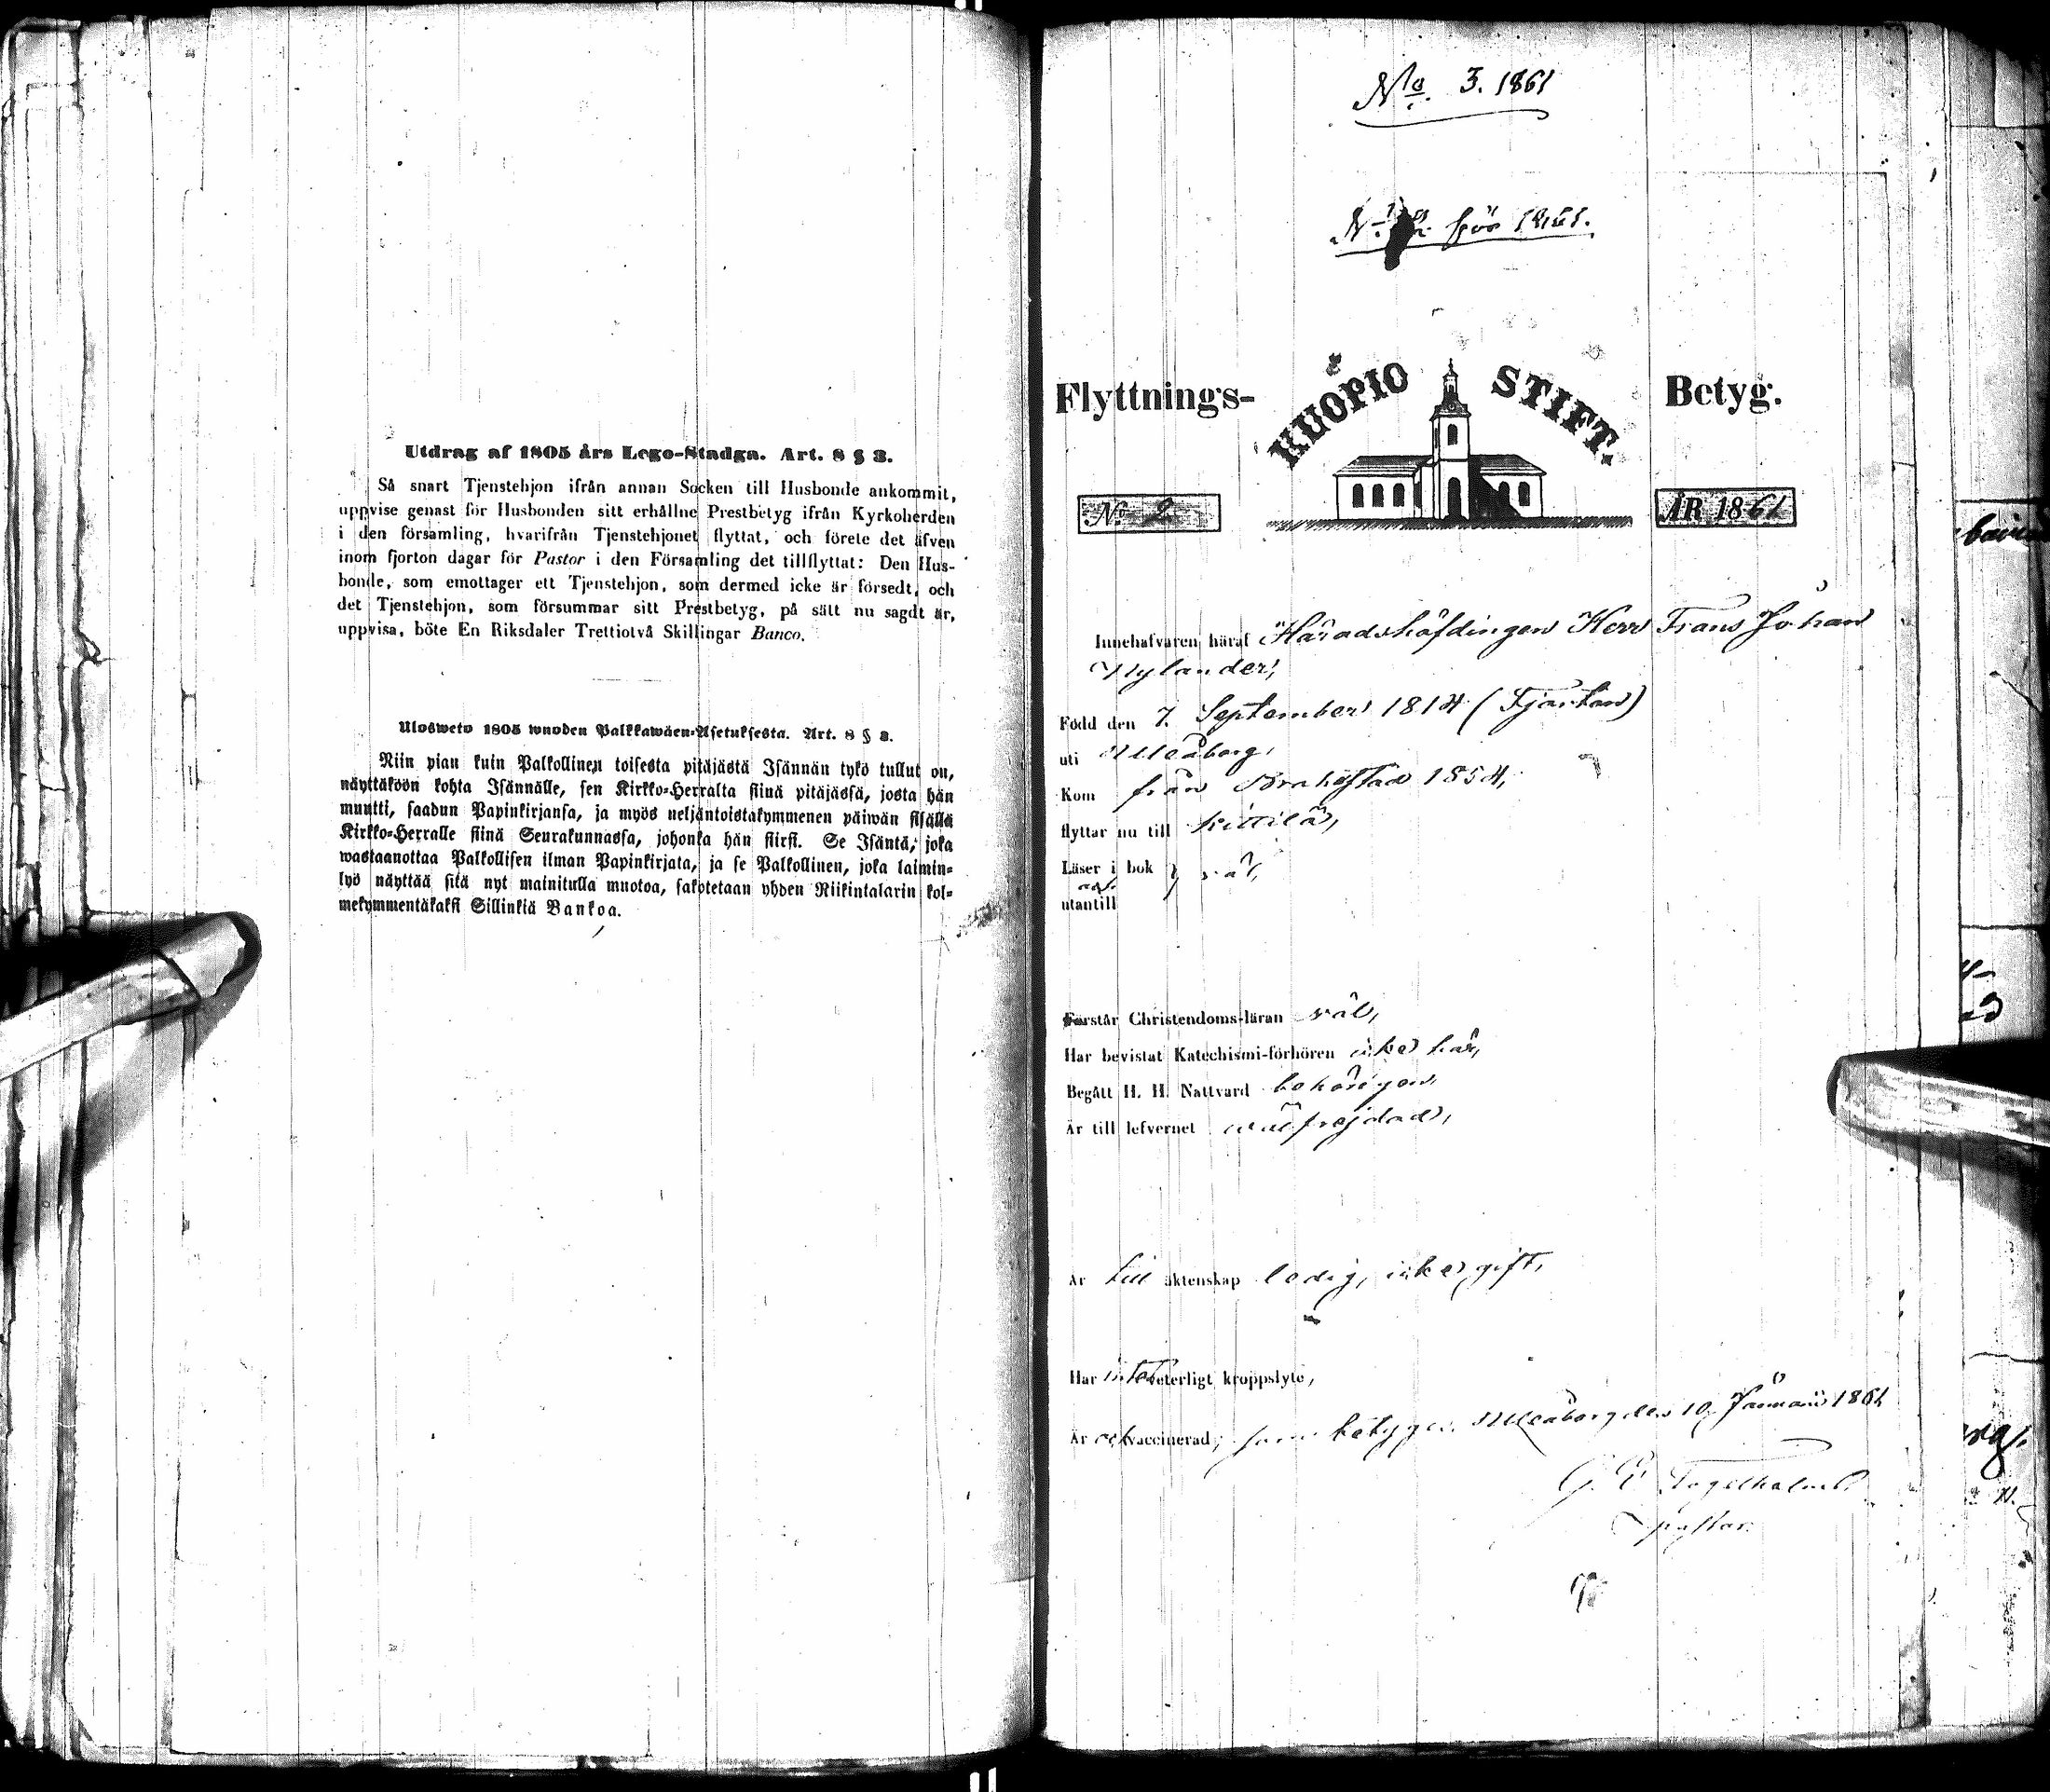 Utdrag af 1805 års Lego-Stadga. Art. 8 § 3.
Så snart Tjenstehjon ifrån annan Socken till Husbonde ankommit,
uppvise genast för Husbonden sitt erhållne Prestbetyg ifrån Kyrkoherden
i den församling, hvarifrån Tjenstehjonet flyttat, och förete det äfven
inom fjorton dagar för Pastor i den Församling det tillflyttat: Den Hus-
bonde, som emottager ett Tjenstehjon, som dermed icke är försedt, och
det Tjenstehjon, som försummar sitt Prestbetyg, på sätt nu sagdt är,
uppvisa, böte En Riksdaler Trettiotvå Skillingar Banco.
Ulosweto 1805 wuoden Palkkawäen-Asetuksesta. Art. 8 § 3.
Niin pian kuin Palkollinen toisesta pitäjästä Isännän tykö tullut on,
näyttäköön kohta Isännälle, sen Kirkko-Herralta siinä pitäjässä, josta hän
muutti, saadun Papinkirjansa, ja myös neljäntoistakymmenen päiwän sisällä
Kirkko-Herralle siinä Seurakunnassa, johonka hän siirsi. Se Isäntä, joka
wastaanottaa Palkollisen ilman Papinkirjata, ja se Palkollinen, joka laimin-
lyö näyttää sitä nyt mainitulla muotoa, sakotetaan yhden Riikintalarin kol-
mekymmentäkaksi Sillinkiä Bankoa.
No 3. 1861
för 1861.
Flyttnings- KUOPIO STIFT. Betyg.
No 2 ÅR 1861
Innehafvaren häraf Häradshöfdingen Herr Frans Johan
Nylander,
Född den 7. September 1814 (Fjorton)
uti Uleåborg,
Kom från Brahestad 1854,
flyttar nu till Kittilä,
Läser i bok } väl,
och
utantill
Förstår Christendoms-läran väl,
Har bevistat Katechismi-förhören icke här,
Begått H. H. Nattvard behörigen,
Är till lefvernet wälfrejdad,
Är till äktenskap ledig, icke gift,
Har intet veterligt kroppslyte,
Är ock vaccinerad, som betygar. Uleåborg den 10 Januarii 1861
Pastor.